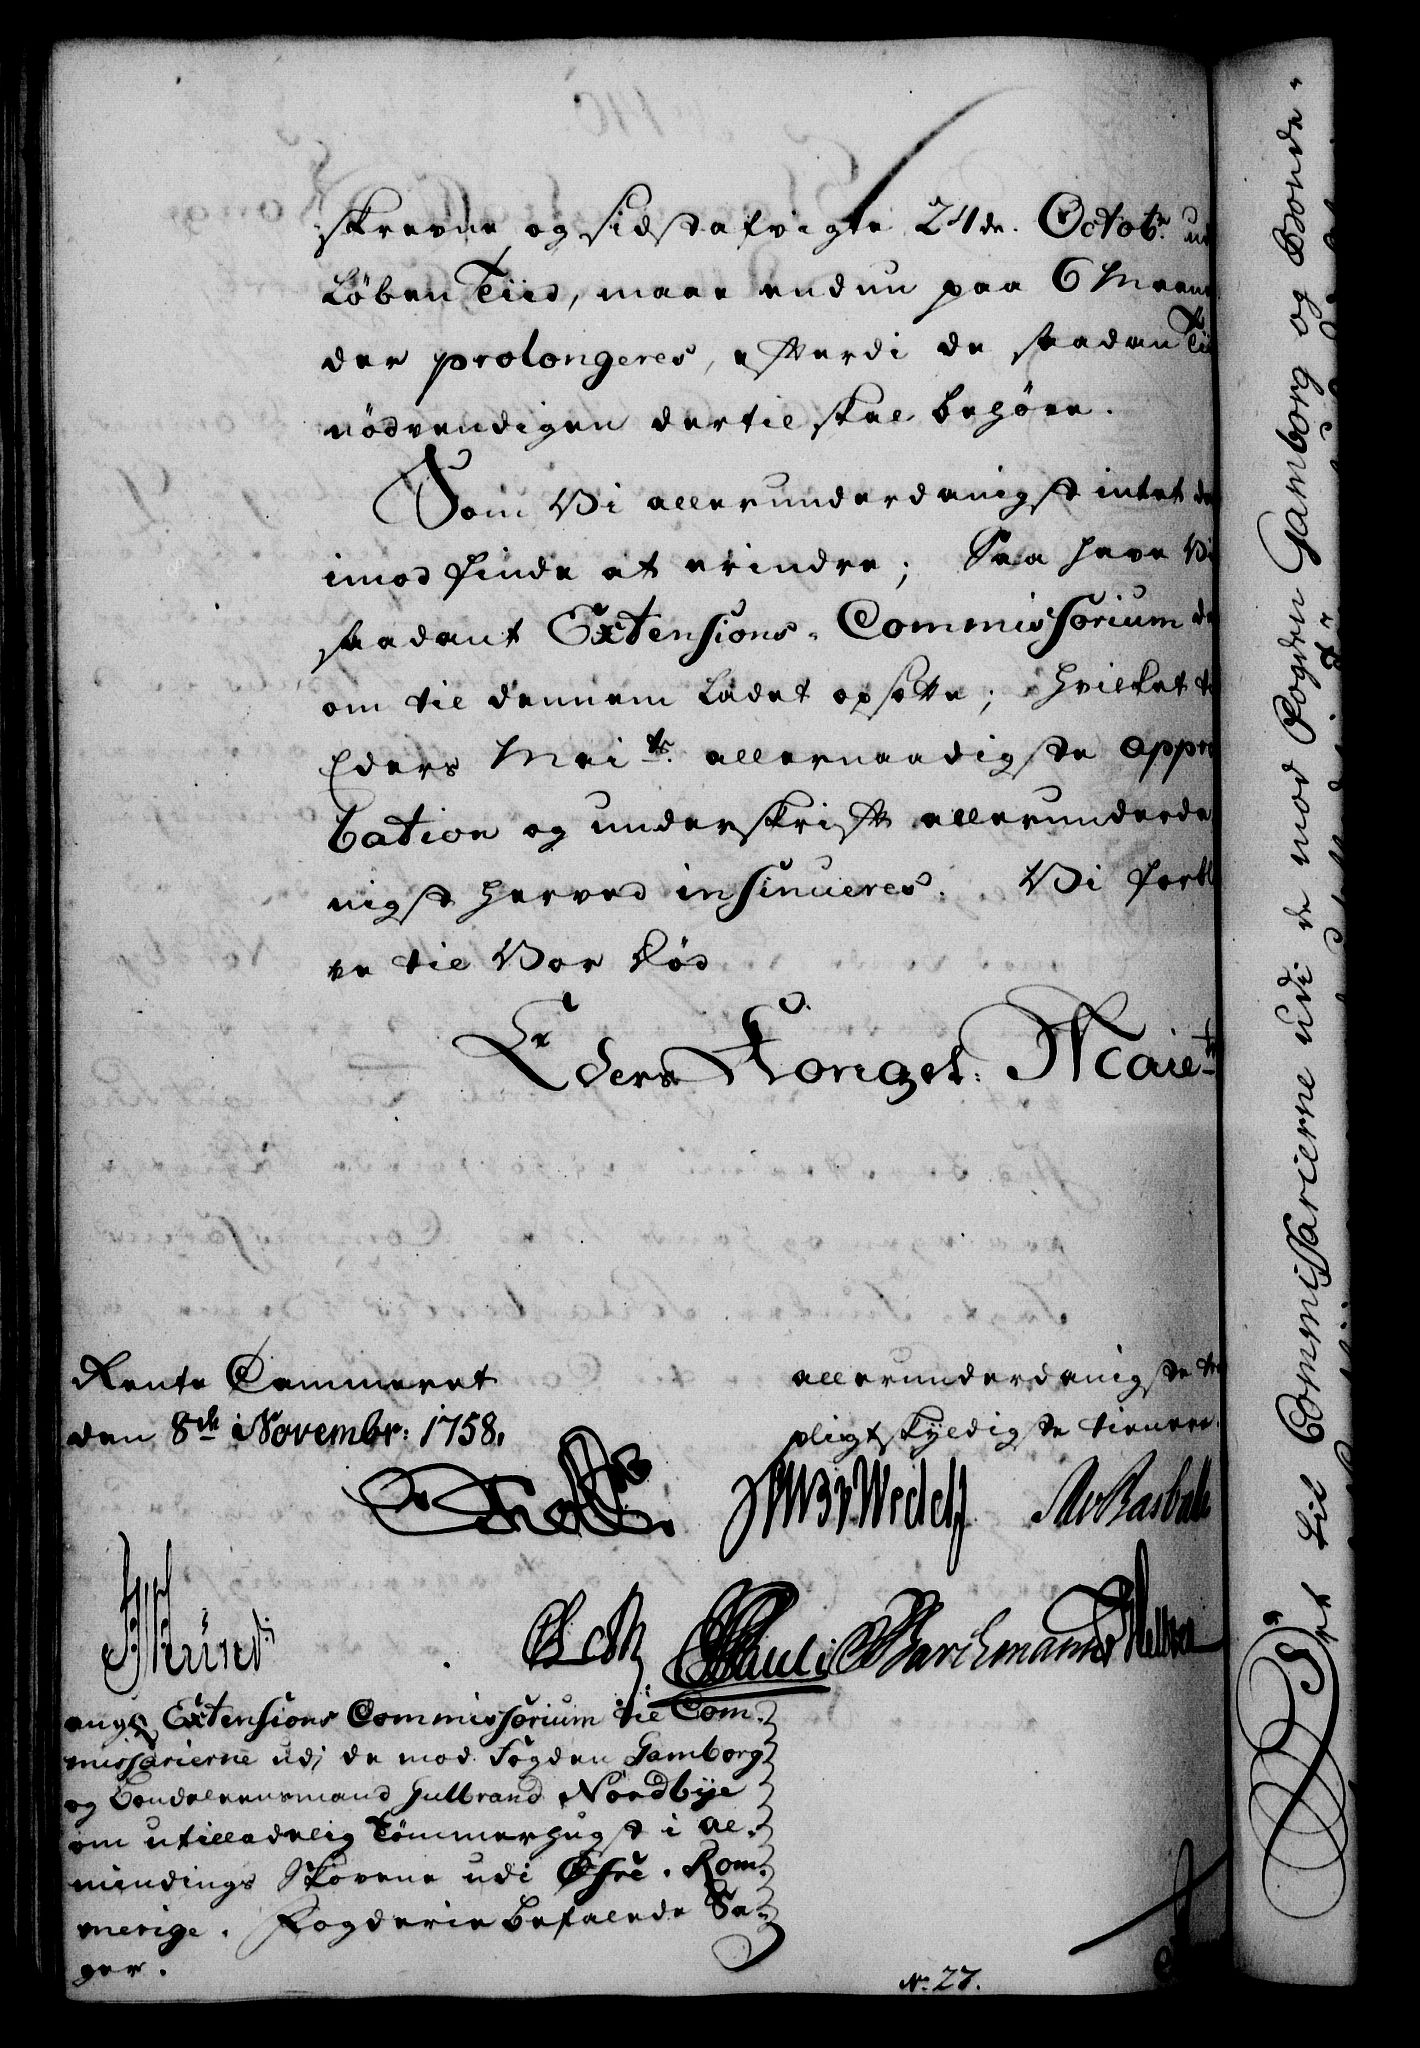 skrevne og sidstafvigte 24de. Octobr.
Løben Tiid, maae endnu paa 6 Maane
der prolongeres, efterdi de saadan Tii
nödvendigen dertil skal behøve.
Som Vi allerunderdanigst intet de
imod finde at erindre; Saa have Vi
saadant Extensions-Commissorium de
om til dennem ladet opsætte; hvilket t
Eders Mai ts. allernaadigste appro
bation og underskrift allerunderda
nigst herved insinueres. Vi forbl
ve til Vor Död
Eders Kongel: Maiets
Rente Cammeret
den 8de Novembr: 1758.
allerunderdanigste
pligtskyldigste tienere.
Pauli Barchmann
ang: Extensions Commissorium til Com-
missarierne udj de mod Fogden Gamborg
og Bondeleensmand Gulbrand Nordbye
om utilladelig Tömmerhugst i Al-
mindings Skovene udi Øfre-Rom-
merige Fogderie befalede Sa-
ger.
No. 27.
til Commissarierne udi de mod Fogden Gamborg og Bonde-